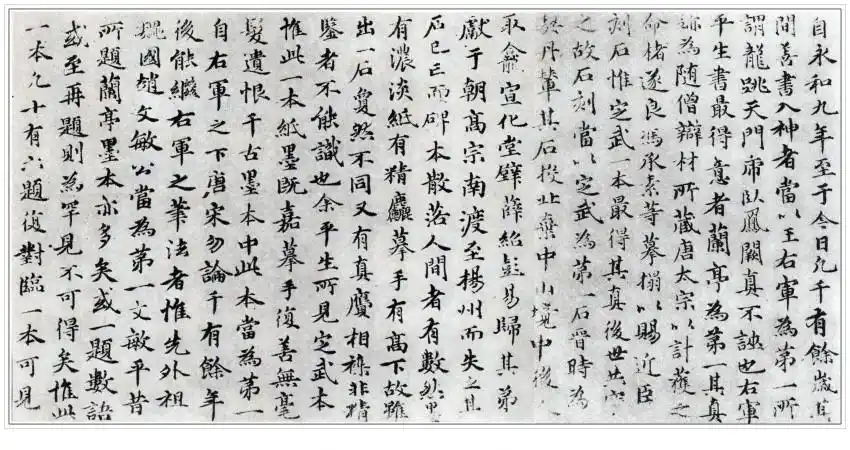 自永和九年至于今日凡千有餘歲其
間善書入神者當以王右軍為第一所
謂龍跳天門虎臥鳳闕真不誣也右軍
平生書最得意者蘭亭為第一其真
跡為隋僧辯材所藏唐太宗以計獲之
命褚遂良馮承素等摹搨以賜近臣
刻石惟定武一本最得其真後世共
之故石刻當以定武為第一石晉時為
契丹輦其石投此棄中山境中後
取龕宣化堂壁薛紹彭易歸其第
獻于朝高宗南渡至楊州而失之其
石已亡而碑本散落人間者有數然墨
有濃淡紙有精麤摹手有高下故雖
出一石敻然不同又有真贗相襍非精
鑒者不能識也余平生所見定武本
惟此一本紙墨既嘉摹手復善無毫
髮遺恨千古墨本中此本當為第一
自右軍之下唐宋勿論千有餘年
後能繼右軍之筆法者惟先外祖
魏國趙文敏公當為第一文敏平昔
所題蘭亭墨本亦多矣或一題數語
或至再題則為罕見不可得矣惟此
一本凡十有六題復對臨一本可見